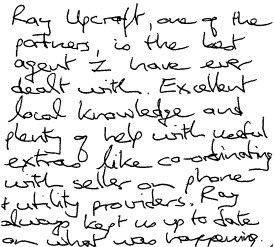 Ray Upcroft, one of the
partners, is the best
agent I have ever
dealt with. Excellent
local knowledge and
plenty of help with useful
extras like co-ordinating
with seller on phone
+ utility providers. Ray
always kept us up to date
on what was happening.